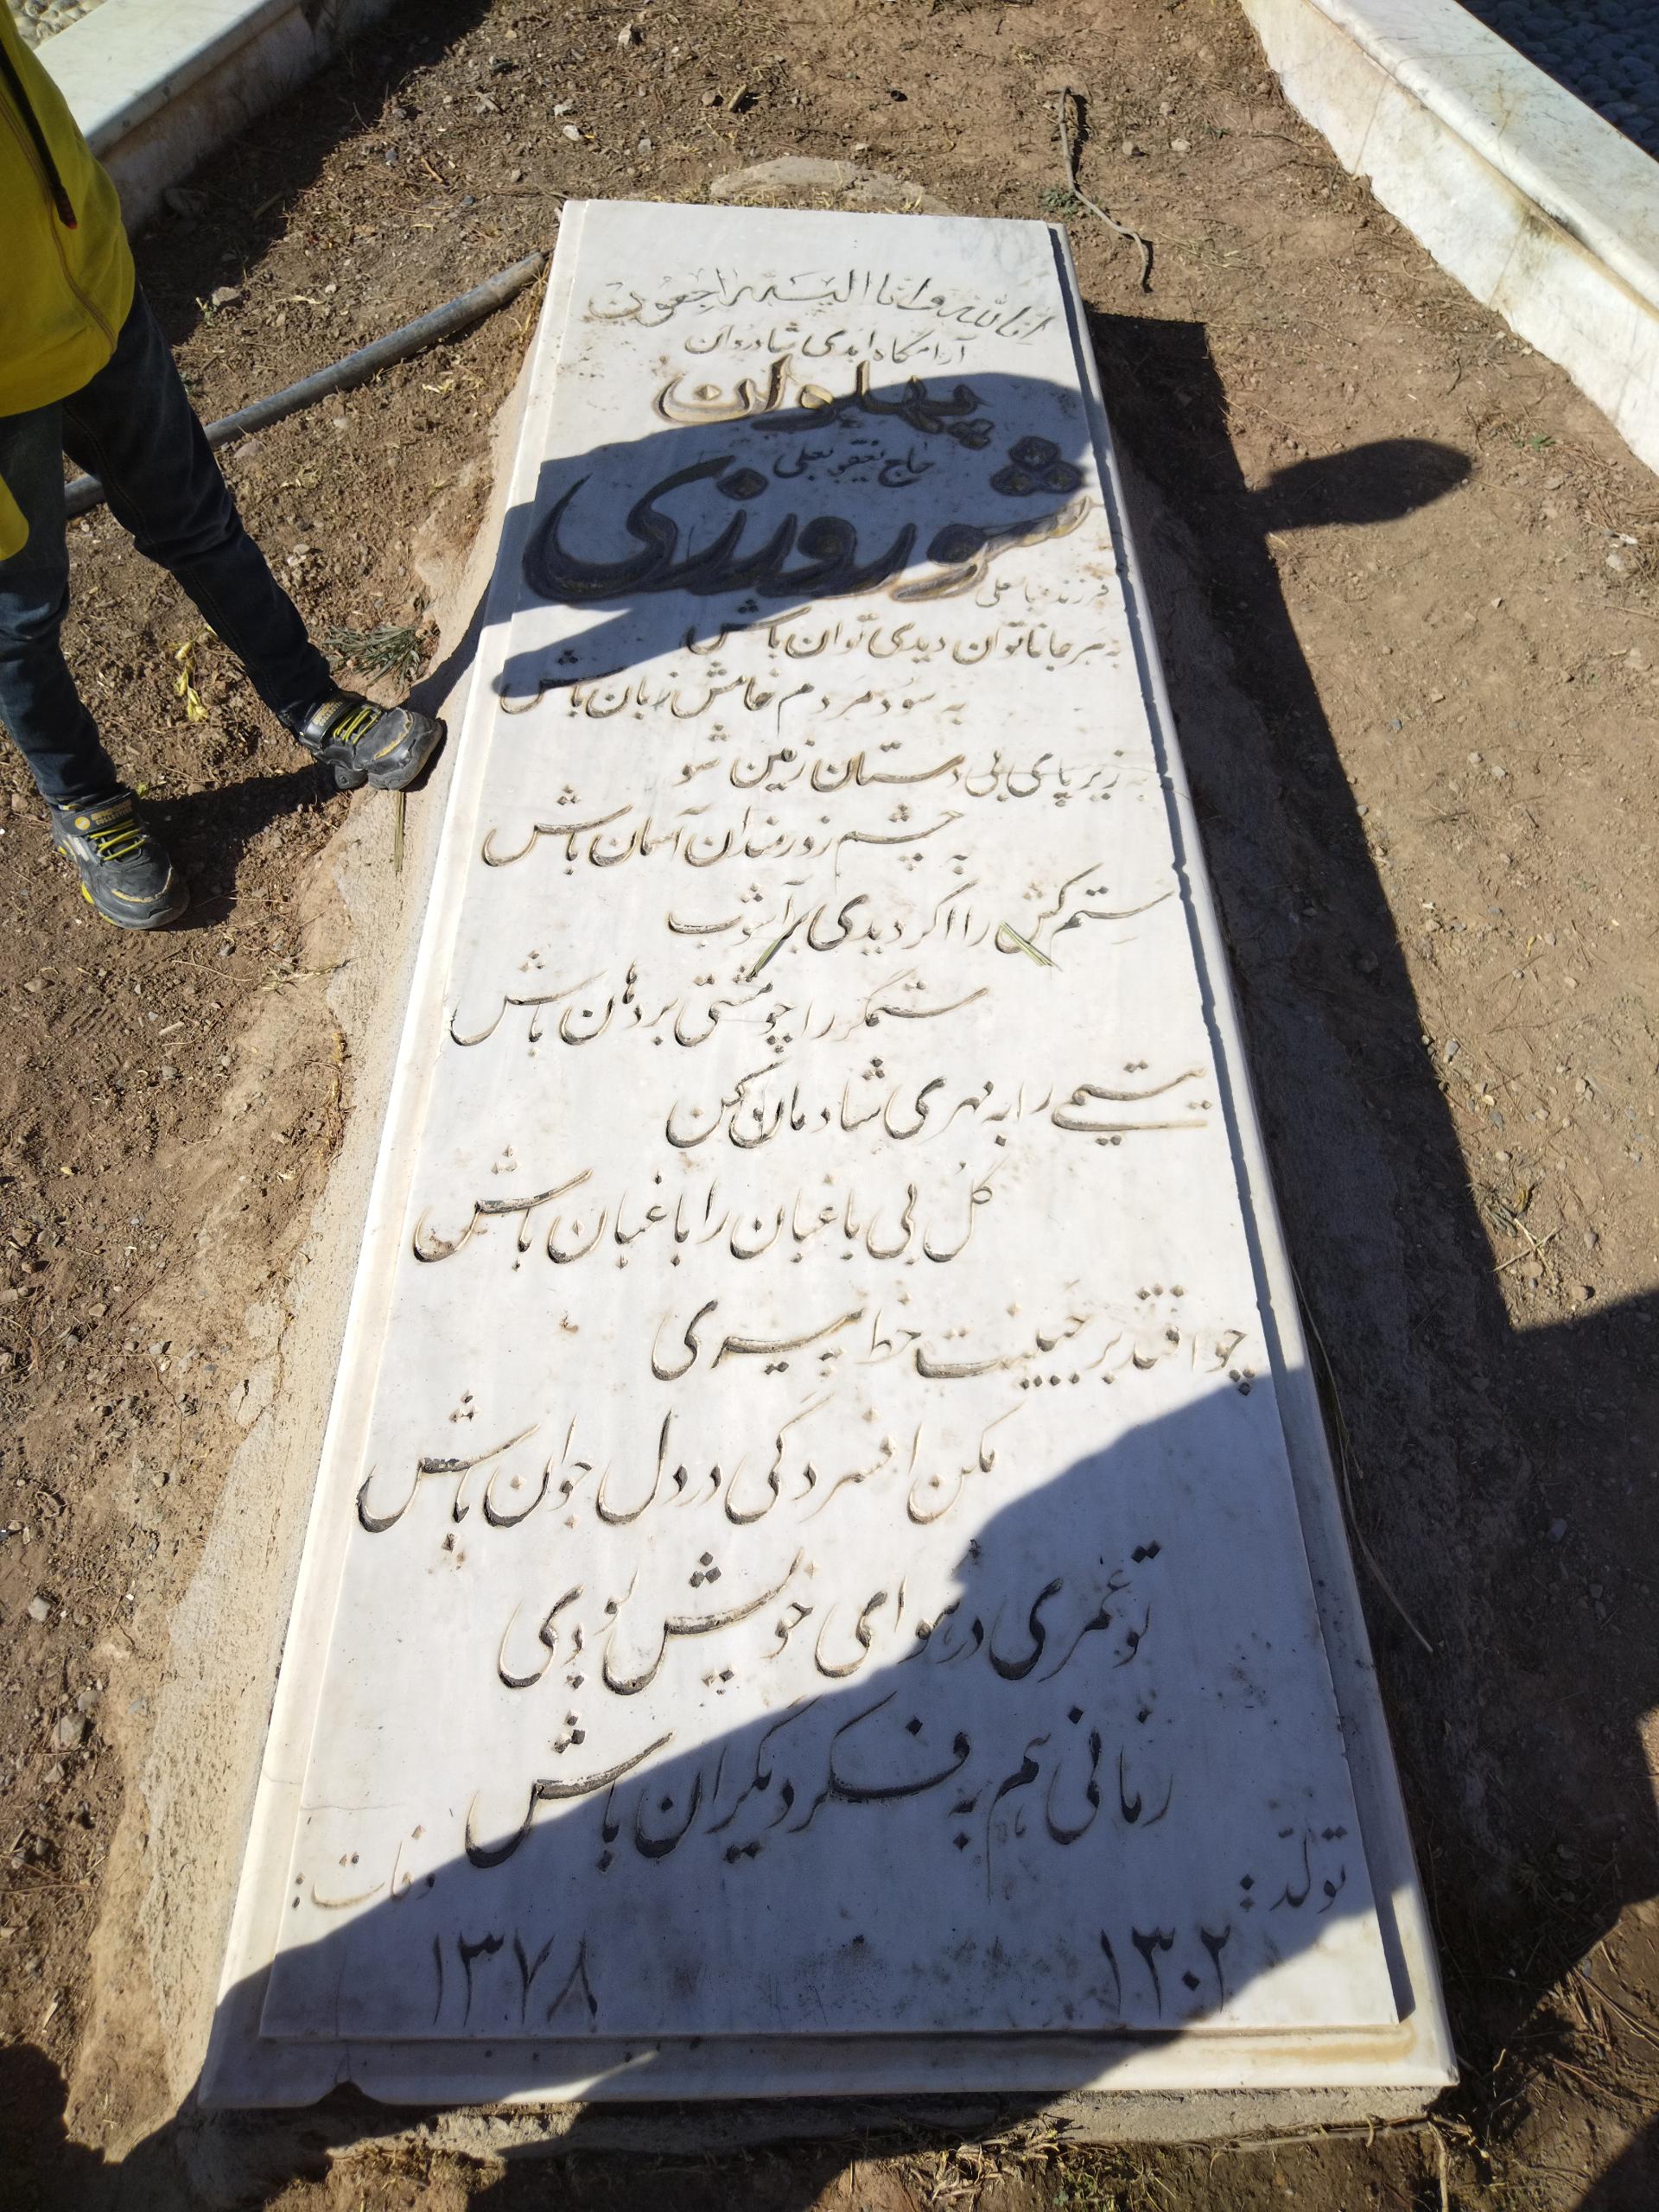 انا لله و انا الیه راجعون
آرامگاه ابدی شادروان
پهلوان
حاج یعقوبعلی
شورورزی
فرزند عباسعلی
به هر جا ناتوان دیدی توان باش
به سود مردم خامش زبان باش
به زیر پای بی دستان زمین شو
به چشم زورمندان آسمان باش
ستم کش را اگر دیدی برآشوب
ستمگر را چو مشتی بر دهان باش
یتیمی را به مهری شادمان کن
گل بی باغبان را باغبان باش
چو افتد بر جبینت خط پیری
مکن افسردگی در دل جوان باش
تو عمری در هوای خویش بودی
زمانی هم به فکر دیگران باش
تولد: وفات:
۱۳۰۲ ۱۳۷۸